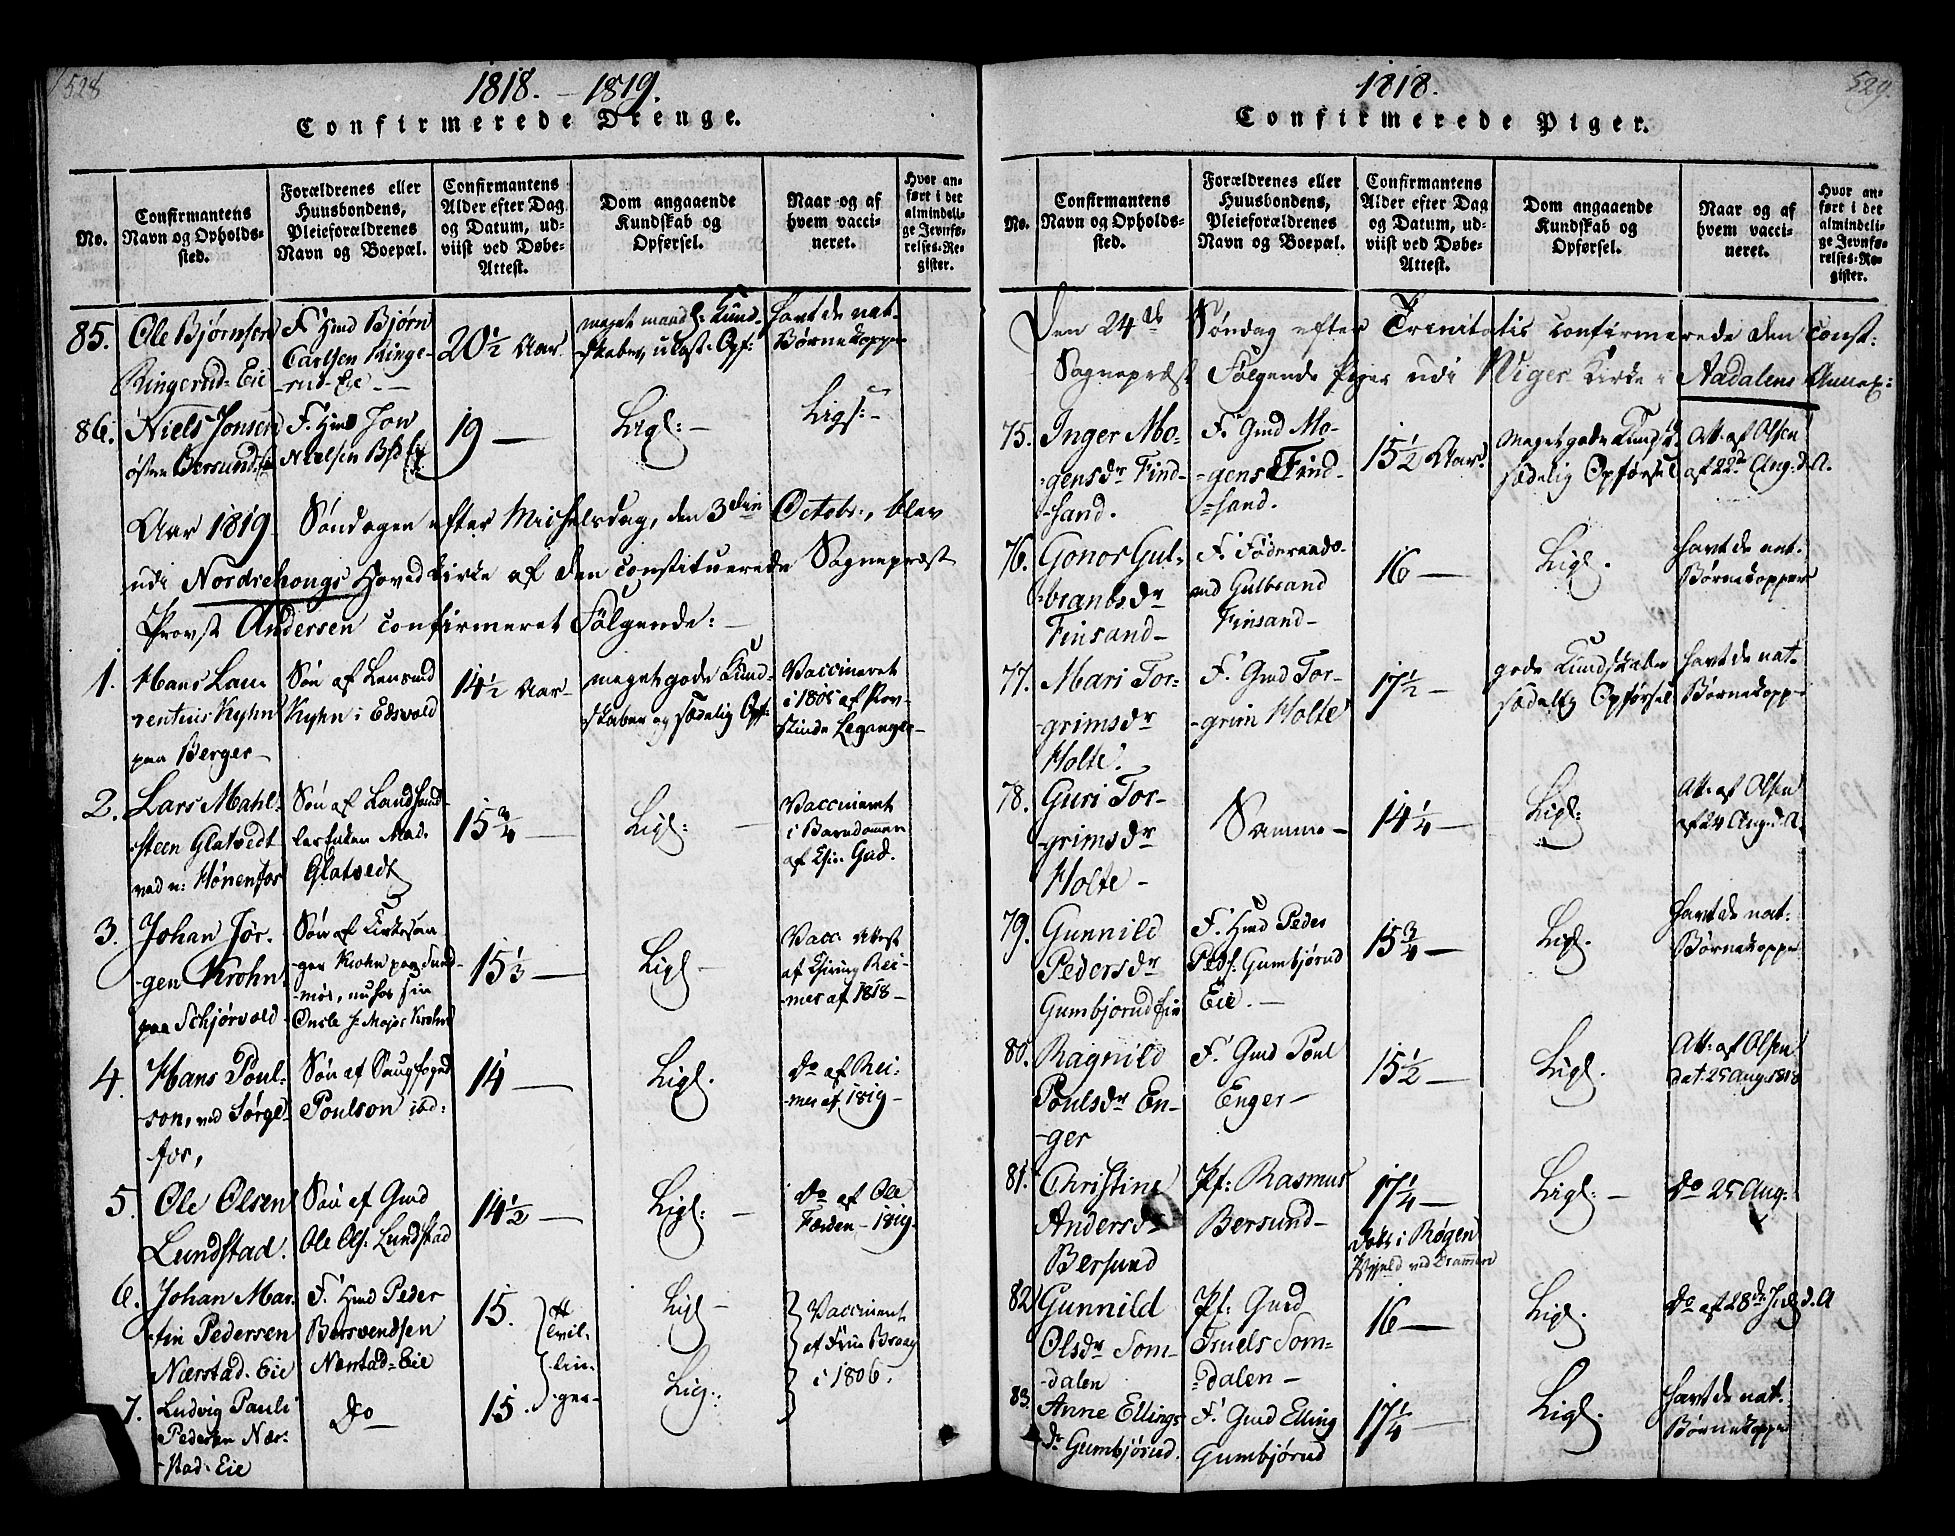 528
1818. – 1819.
Confirmerede Drenge.
No.
Confirmantens
Navn og Opholds-
sted.
Forældrenes eller
Huusbondens,
Pleieforældrenes
Navn og Boepæl.
Confirmantens
Alder efter Dag
og Datum, ud-
viist ved Døbe-
Attest.
Dom angaaende
Kundskab og
Opførsel.
Naar og af
hvem vacci-
neret.
Hvor an-
ført i det
almindeli-
ge Jevnfø-
relses-Re-
gister.
85.
Ole Bjørnsen
Ringerud-Eie
F. Hmd Bjørn
Carlsen Ringe-
-rud-Eie -
20½ Aar
maget maadl: Kund-
skaber, ulast: Opf:
havt de nat-
Børnekopper
86.
Niels Jonsen
østre Bersund
F. Hmd Jon
Nielsen
19 —
Ligl: –
Ligs: –
Aar 1819 Søndagen efter Michelsdag, den 3die Octobr:, blev
udi Nordrehougs Hoved Kirke af den constituerede Sognepræst
Provst Andersen confirmeret Følgende: –
1.
Hans Lau-
rentius Kyhn
paa Berger –
Søn af Lensmd
Kyhn i Edsvold
14½ Aar –
maget gode Kund-
skaber og sædelig Opf:
Vaccineret
i 1805 af Prov-
stinde Leganger –
2.
Lars Mahl-
steen Glatvedt
ved n: Hønenfos
Søn af Landhand-
ler Enken Mad.
Glatvedt
15¾ —
Ligl: –
Vaccineret
i Barndomen
af Chir. Gad.
3.
Johan Jør-
-gen Krohn
paa Schjørvold
Søn af Kirkesan
ger Krohn paa Sund-
-møe, nu hos sin
Oncle Hr Major Krohn
15⅓ —
Ligl –
Vacc: Attest
af Chirurg Rei-
mers af 1818 –
4.
Hans Poul-
-son, ved Sørgl-
fos,
Søn af Saugfoged
Poulson ibd:
14 —
Ligl.
Do af Rei-
mers af 1819 –
5.
Ole Olsen
Lundstad.
Søn af Gmd
Ole Ols: Lundstad
14½ —
Ligl: –
Do af Ole
Færden – 1819.
6.
Johan Mar-
tin Pedersen
Nærstad-Eie
F. Hmd Peder
Bersvendsen
Nærstad-Eie
15.
et
tvil-
-lin-
-ger –
Ligl –
Vaccineret
af Fru Braag
i 1806.
7.
Ludvig Pauli
Pedersen Nær-
-stad-Eie
Do –
15.
Lig:
529.
1818.
Confirmerede Piger.
No.
Confirmantens
Navn og Opholds-
sted.
Forældrenes eller
Huusbondens,
Pleieforældrenes
Navn og Boepæl.
Confirmantens
Alder efter Dag
og Datum, ud-
viist ved Døbe-
Attest.
Dom angaaende
Kundskab og
Opførsel.
Naar og af
hvem vacci-
neret.
Hvor an-
ført i det
almindeli-
ge Jevnfø-
relses-Re-
gister.
Den 24de Søndag efter Trinitatis confirmerede den const:
Sognepræst Følgende Piger udi Wiger Kirke i Aadalens Annex:
75.
Inger Mo-
-gensdr Find-
-sand.
F. Gmd Mo-
-gens Find-
-sand.
15½ Aar
Maget gode Kundsk.
sædelig Opførsel
Att. af Olsen
af 22de Aug. d. A.
76.
Gonor Gul-
-brantsdr
Finsand –
F. Føderaads-
md Gulbrand
Finsand –
16 —
Ligl.
havt de nat-
Børnekopper
77.
Mari Tor-
-grimsdr
Holte.
F. Gmd Tor-
-grim Holte
17½ –
gode Kundskaber
sædelig Opførsel
havt de nat-
Børnekopp-
78.
Guri Tor-
-grimsdr
Holte –
Samme –
14¼ –
Ligl:
Att. af Olsen
af 24 Aug. d. A.
79.
Gunnild
Pedersdr
Gumbjorud Eie
F. Hmd Peder
Peds. Gumbjørud
Eie. –
15¾ –
Ligl.
havt de nat:
Børnekoppe
80.
Ragnild
Poulsdr En-
-ger
F. Gmd Poul
Enger –
15½ –
Ligl.
Att. af Olsen
dat. 25 Aug. 1818
81.
Christine
Andersdr
Bersund
Pf: Rasmus
Bersund –
17¼ –
døbt i Røgen
Prgjeld ved Drammen
Ligl: –
Do 25 Aug:
82.
Gunnild
Olsdr Som-
-dalen
Pf: Gmd
Truels Som-
-dalen –
16 —
Ligl.
Do af 28de Juli d. A
83.
Anne Ellings-
dr Gumbjørud.
F. Gmd Elling
Gumbjørud
17¼ –
Ligl.
havt de nat.
Børnekopper